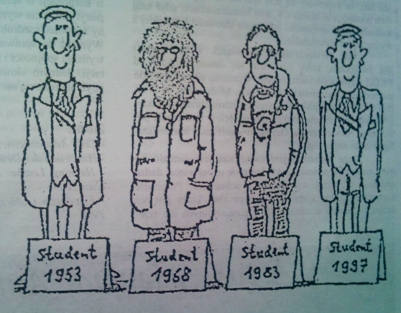 Student
1953
Student
1968
Student
1983
Student
1997